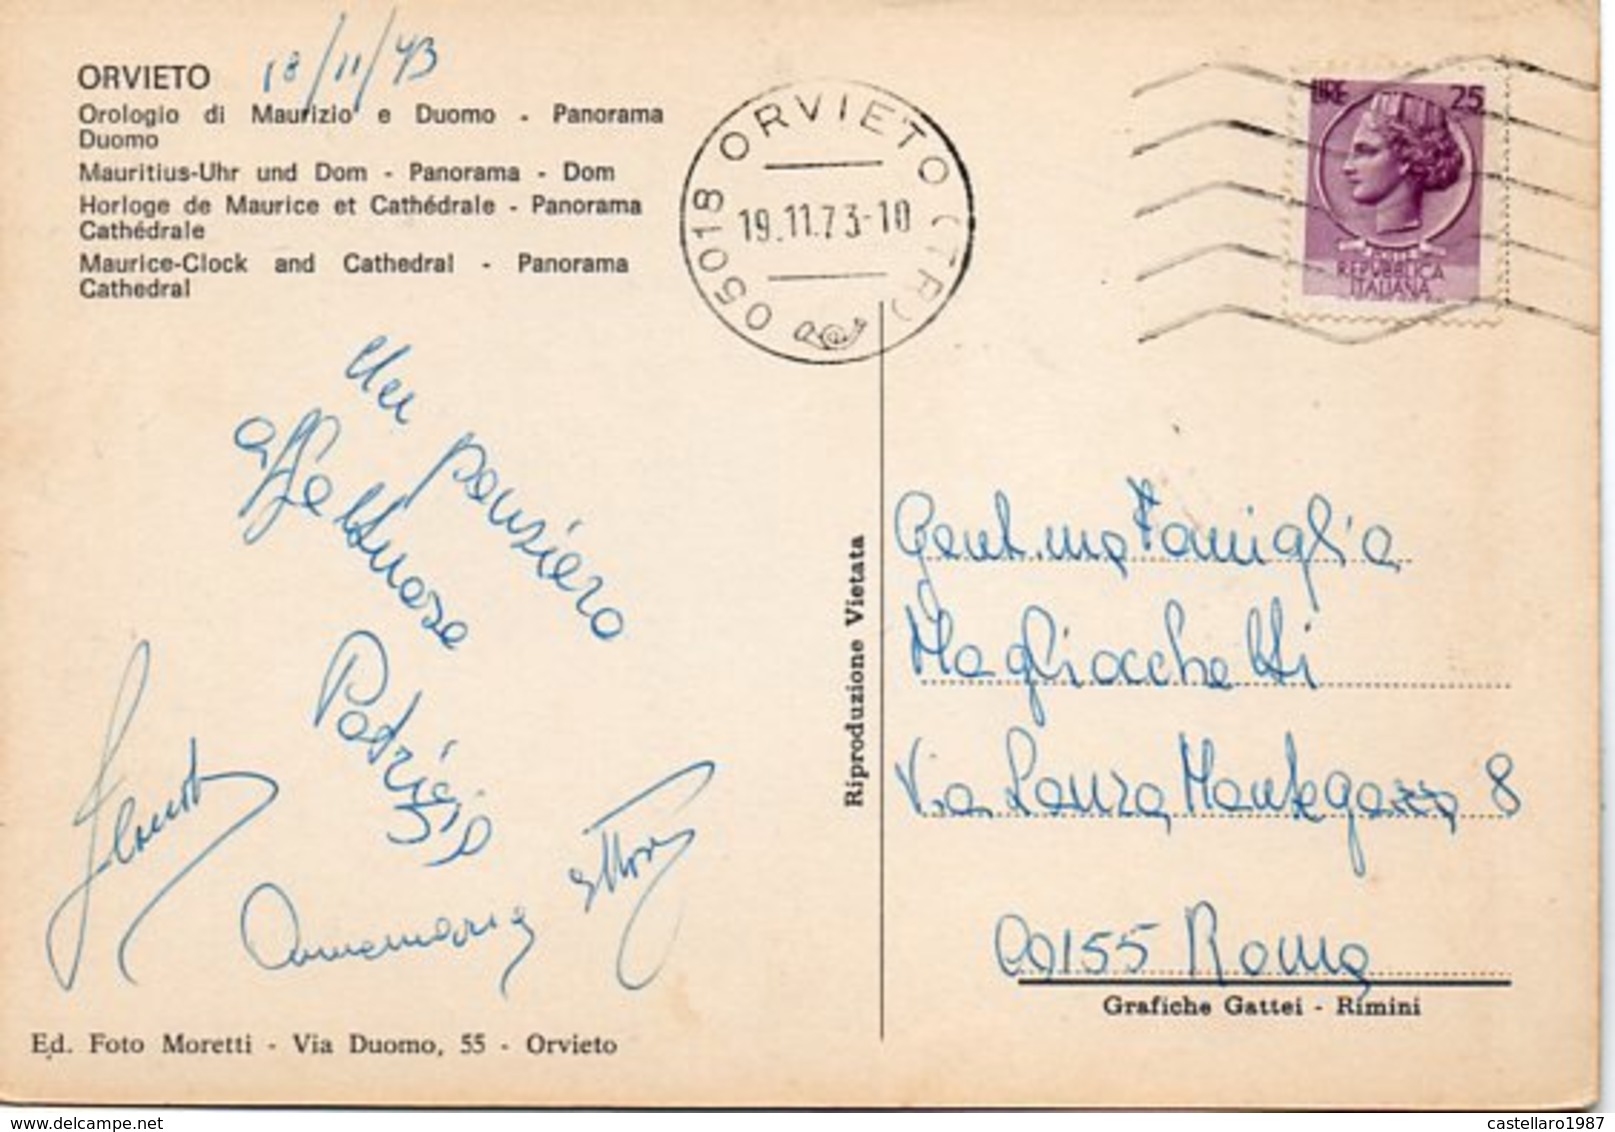 ORVIETO
18/11/73
Orologio di Maurizio e Duomo - Panorama
Duomo
Mauritius-Uhr und Dom - Panorama - Dom
Horloge de Maurice et Cathédrale - Panorama
Cathédrale
Maurice-Clock and Cathedral - Panorama
Cathedral
05018 ORVIETO (TR)
19.11.73-10
LIRE 25
REPVBBLICA
ITALIANA
Un pensiero
affettuoso
Patrizia
Annamaria
Riproduzione Vietata
Gent.ma Famiglia
Magliocchetti
Via Laura Mantegazza 8
00155 Roma
Grafiche Gattei - Rimini
Ed. Foto Moretti - Via Duomo, 55 - Orvieto
castellaro1987